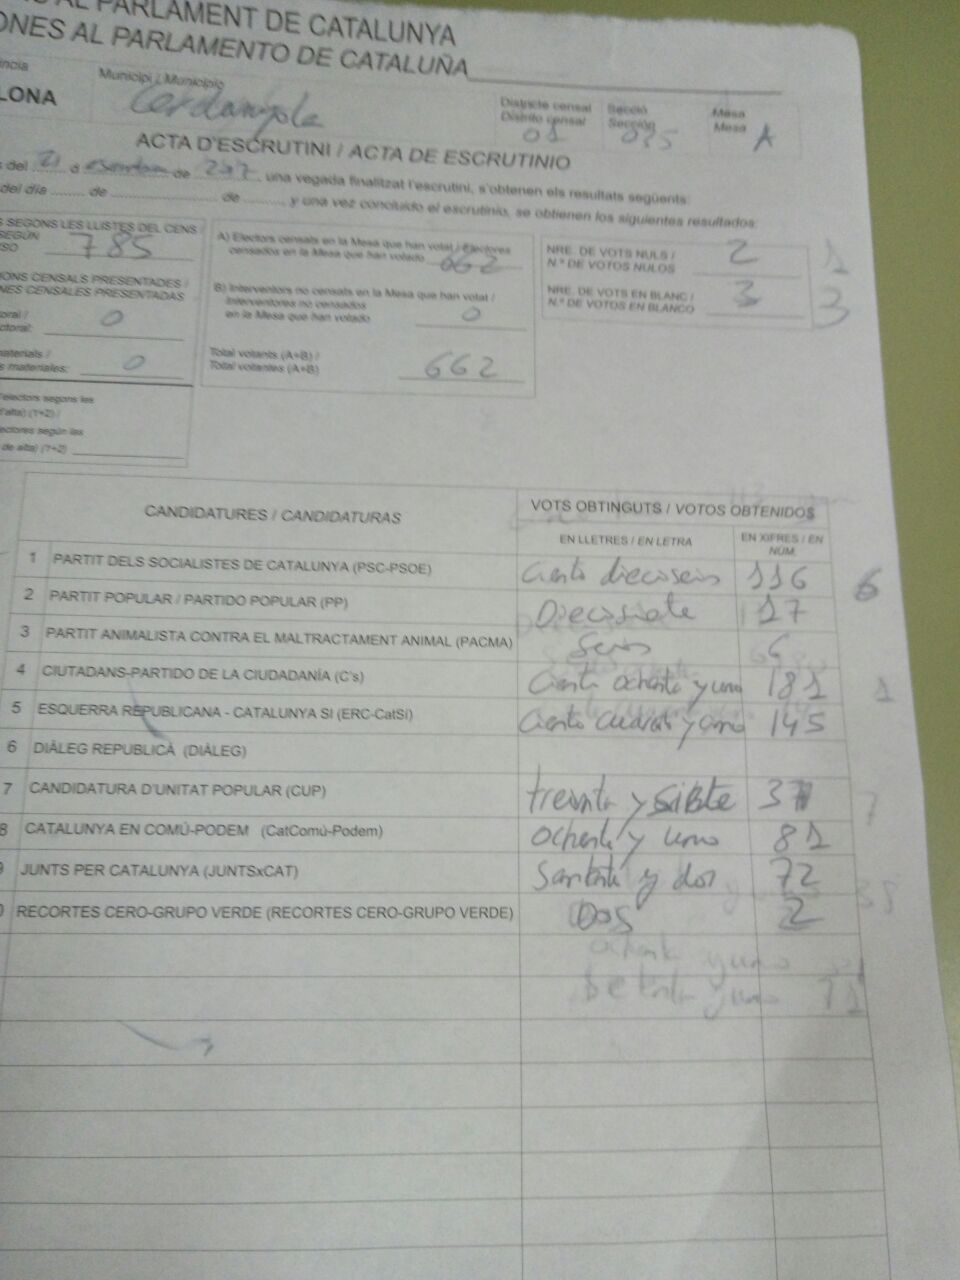 AL PARLAMENT DE CATALUNYA
ONES AL PARLAMENTO DE CATALUÑA
ncia
LONA
Municipi / Municipio
Cerdanyola
Districte censal
Distrito censal
01
Secció
Sección
035
Mesa
Mesa
A
ACTA D'ESCRUTINI / ACTA DE ESCRUTINIO
del 21 de 2017, una vegada finalitzat l'escrutini, s'obtenen els resultats següents:
del día ........ de ........................ de ........., y una vez concluido el escrutinio, se obtienen los siguientes resultados:
SEGONS LES LLISTES DEL CENS /
SEGÚN
SO 785
ONS CENSALS PRESENTADES /
NES CENSALES PRESENTADAS
oral /
ctoral: 0
aterials /
s materiales: 0
electors segons les
d'alta) (1+2) /
ectores según las
de alta) (1+2)
A) Electors censats en la Mesa que han votat / Electores
censados en la Mesa que han votado 662
B) Interventors no censats en la Mesa que han votat /
Interventores no censados
en la Mesa que han votado 0
Total votants (A+B) /
Total votantes (A+B) 662
NRE. DE VOTS NULS /
N.º DE VOTOS NULOS 2 1
NRE. DE VOTS EN BLANC /
N.º DE VOTOS EN BLANCO 3 3
CANDIDATURES / CANDIDATURAS
VOTS OBTINGUTS / VOTOS OBTENIDOS
EN LLETRES / EN LETRA
EN XIFRES / EN NÚM.
1 PARTIT DELS SOCIALISTES DE CATALUNYA (PSC-PSOE) Ciento dieciseis 116 6
2 PARTIT POPULAR / PARTIDO POPULAR (PP) Diecisiete 17
3 PARTIT ANIMALISTA CONTRA EL MALTRACTAMENT ANIMAL (PACMA) Seis 6
4 CIUTADANS-PARTIDO DE LA CIUDADANÍA (C's) Ciento ochenta y uno 181 1
5 ESQUERRA REPUBLICANA - CATALUNYA SÍ (ERC-CatSí) Ciento 145
6 DIÀLEG REPUBLICÀ (DIÀLEG)
7 CANDIDATURA D'UNITAT POPULAR (CUP) treinta y siete 37 7
8 CATALUNYA EN COMÚ-PODEM (CatComú-Podem) ochenta y uno 81
JUNTS PER CATALUNYA (JUNTSxCAT) y dos 72
RECORTES CERO-GRUPO VERDE (RECORTES CERO-GRUPO VERDE) Dos 2
ochenta y uno
setenta y uno 71